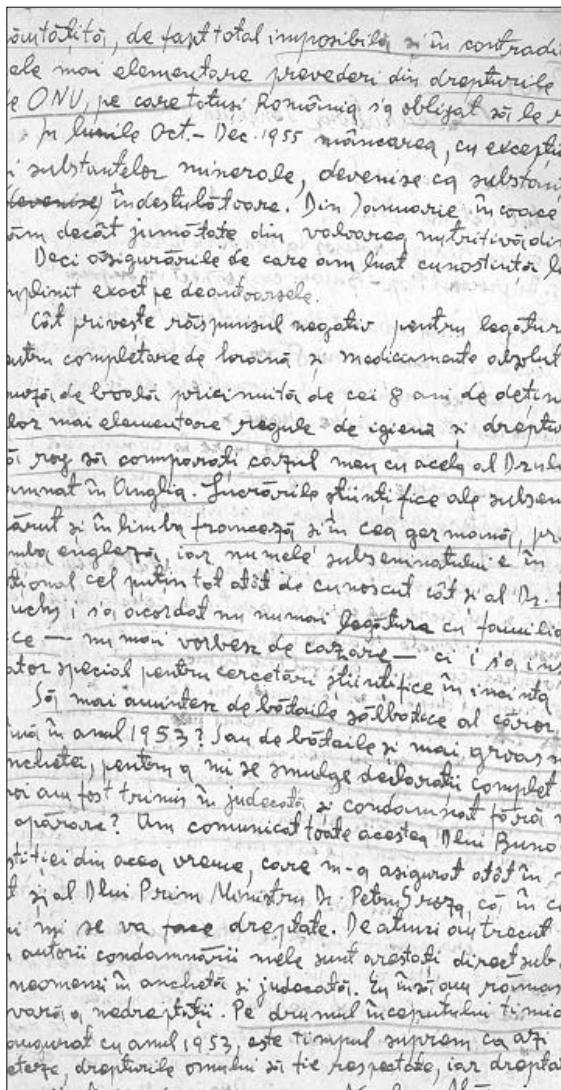 de fapt total imposibilă și în contradi
ele mai elementare prevederi din drepturile
ONU, pe care totuși România s'a obligat să le r
În lunile Oct. – Dec. 1955 mâncarea, cu excepți
i substanțelor minerale, devenise ca substan
(devenise) îndestulătoare. Din Januarie încoace
decât jumătate din valoarea nutritivă din
Deci asigurările de care am luat cunostintă
mplinit exact pe deantoarsele.
Cât privește răspunsul negativ pentru legătur
entru completare de hrană și medicamente absolut
auză de boală pricinuită de cei 8 ani de dețin
lor mai elementare regule de igienă și dreptu
ă rog să comparați cazul meu cu acela al Drulu
amnat în Anglia. Lucrările științifice ale subsem
ărut și în limba franceză și în cea germană, pr
mba engleză, iar numele subsemnatului e în
ational cel puțin tot atât de cunoscut cât și al Dr. F
uchs i s'a acordat nu numai legătura cu familia
ce — nu mai vorbesc de cazare — ci i s'a ins
ator special pentru cercetări științifice în incinta
Să mai amintesc de bătaile sălbatice al căror
mă în anul 1953? Sau de bătaile și mai groasn
nchetei, pentru a mi se smulge declarații complet
oi am fost trimis în judecată și condamnat fără
apărare? Am comunicat toate acestea Dlui Buno
stiției din acea vreme, care m-a asigurat atât în
t și al Dlui Prim Ministru Dr. Petru Groza, că în c
i mi se va face dreptate. De atunci au trecut
autorii condamnării mele sunt arestați direct sub
neomenii în anchetă și judecată. Eu însă am rămas
vară a nedreptății. Pe drumul începutului timid
augurat cu anul 1953, este timpul suprem ca azi
eteze, drepturile omului să fie respectate, iar dreptat